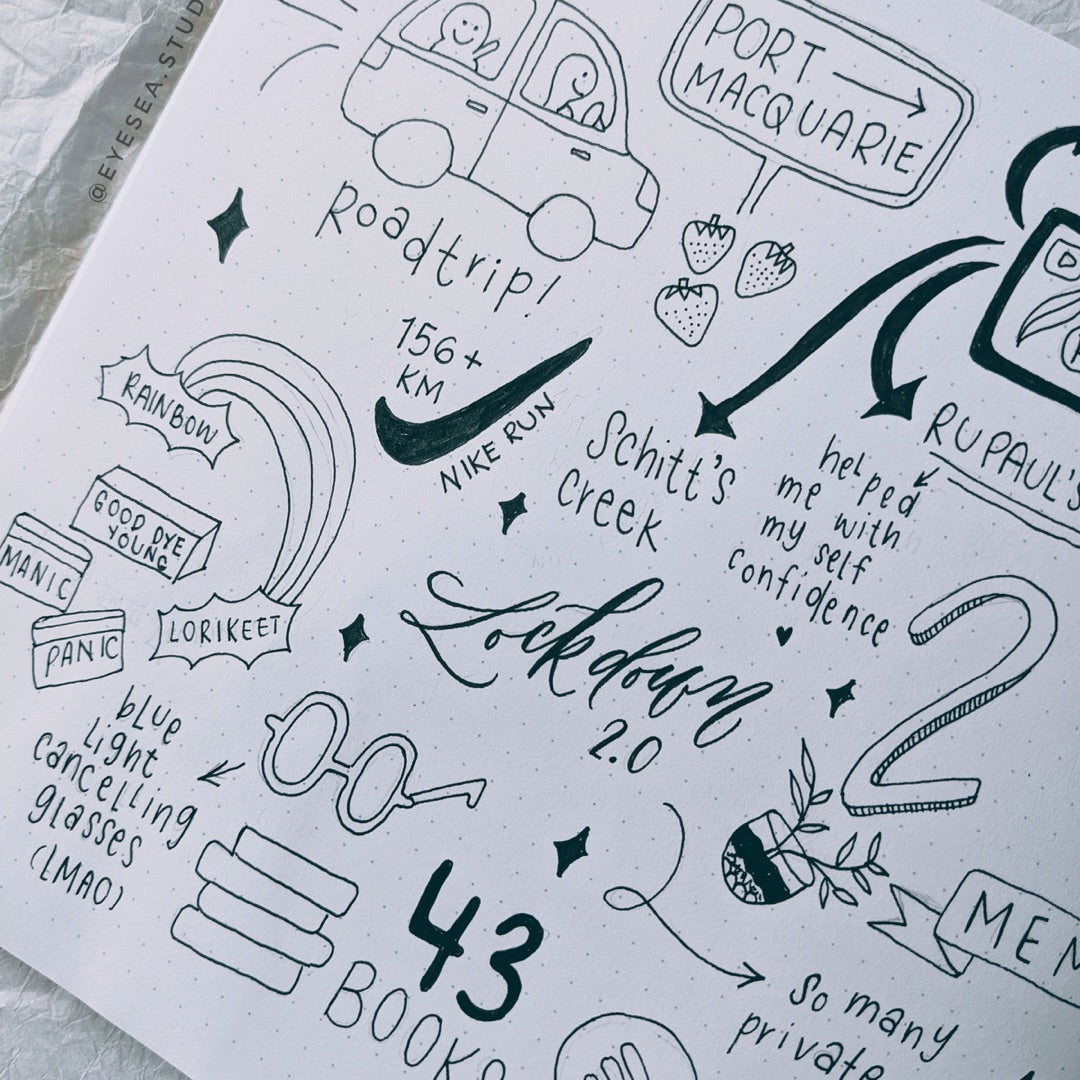 @EYESEA.STUD
PORT
MACQUARIE
Roadtrip!
156+
KM
NIKE RUN
RAINBOW
GOOD DYE
YOUNG
MANIC
PANIC
LORIKEET
Schitt's
Creek
RUPAUL'S
helped
me with
my self
confidence
Lockdown
2.0
2
blue
light
cancelling
glasses
(LMAO)
43
BOOKS
MEN
so many
private